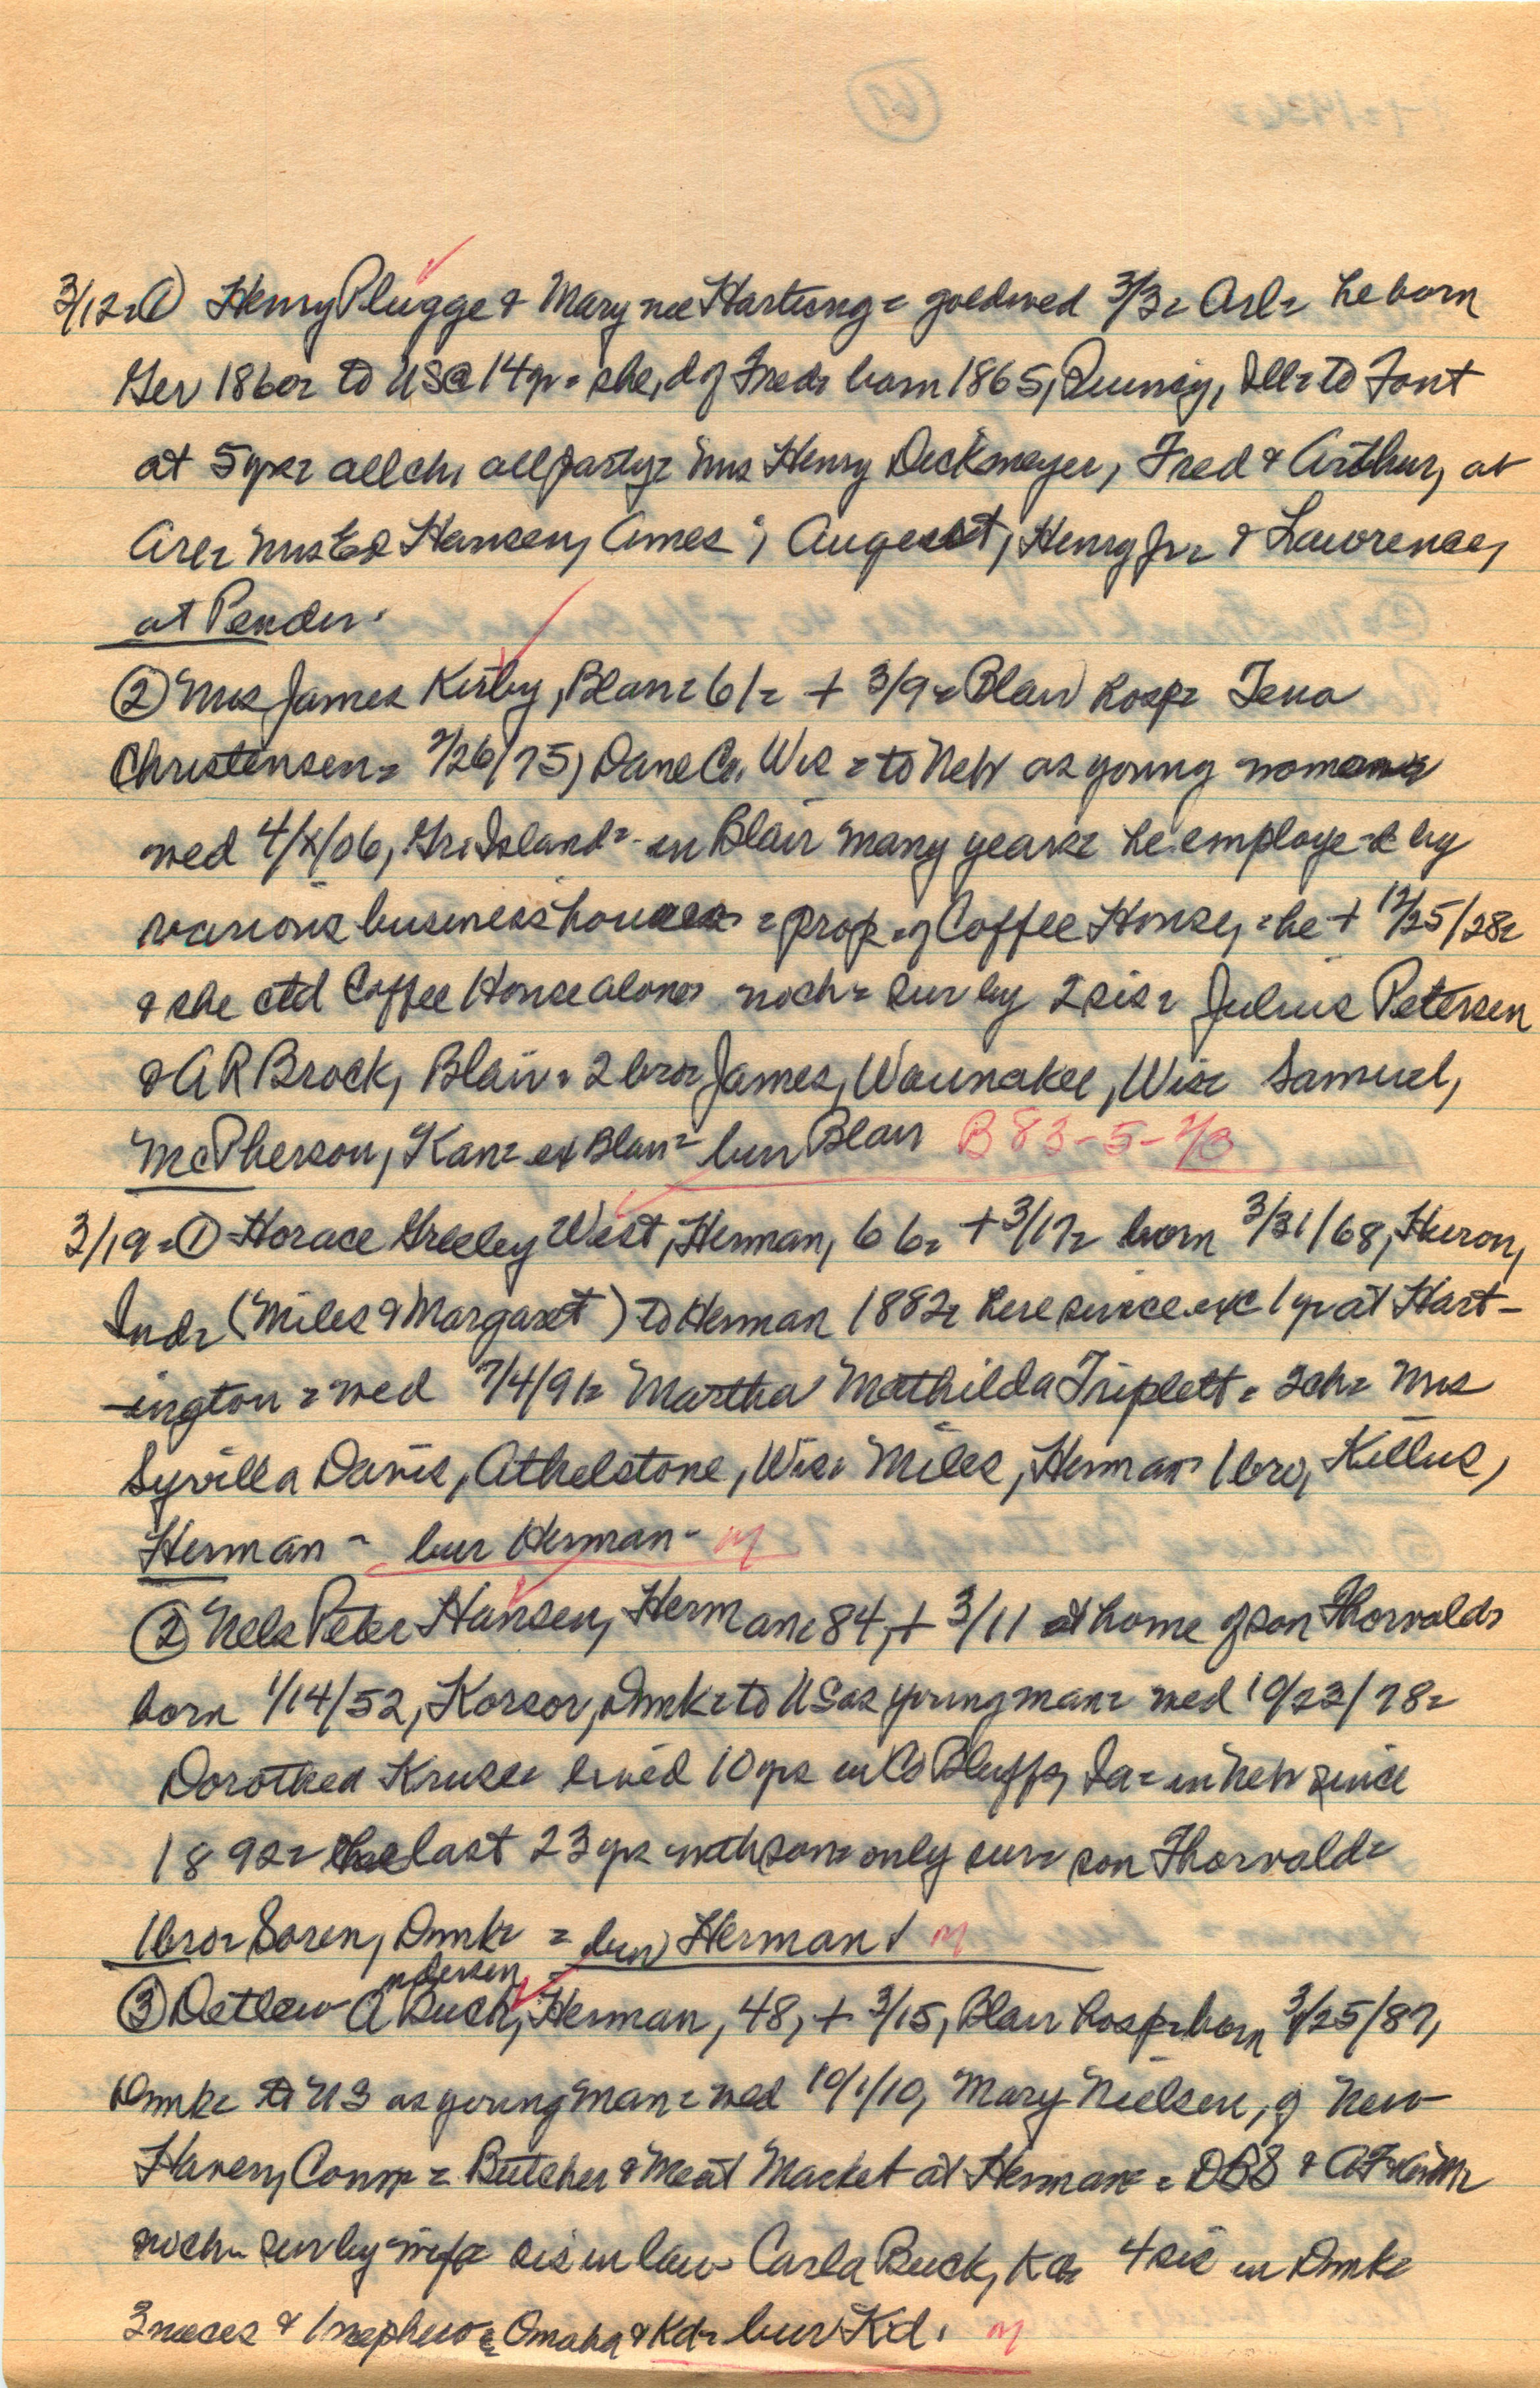 3/12=① Henry Plugge & Mary nee Hartung= goldwed 3/3= Arl= he born
Ger 1860= to US@14yr= she, d of Fred= born 1865, Quincy, Ill= to Font
at 5yrs= all ch, all party= Mrs Henry Dickmeyer, Fred & Arthur, at
Arl= Mrs Ed Hansen, Ames; August, Henry Jr= & Lawrence,
at Pender.
② Mrs James Kirby, Blair= 61= + 3/9= Blair hosp= Tena
Christensen= /26/75, Dane Co. Wis= to Neb as young woman=
wed 4/X/06, Gr Island= in Blair many years= he employed by
various business houses = prop of Coffee House, = he + 12/25/28=
& she ctd Coffee House alone= noch= sur by 2 sis= Julius Petersen
& A R Brock, Blair= 2 bro= James, Waunakee, Wis= Samuel,
McPherson, Kan= ex Blair= bur Blair B 83-5-
3/19=① Horace Greeley West, Herman, 66= + 3/17= born 3/31/68, Huron,
Ind= (Miles & Margaret) to Herman 1882= here since exc 1 yr at Hart-
-ington = wed 7/4/91= Martha Mathilda Triplett= 2ch= Mrs
Syvilla Davis, Athelstone, Wis= Miles, Herman= 1 bro, Killus,
Herman - bur Herman- M
② Nels Peter Hansen, Herman= 84, + 3/11 at home of son Thorvald=
born 1/14/52, Korsor, Dmk= to US as young man= wed 10/23/78=
Dorothea Kruse= lived 10 yrs in Co Bluffs, Ia= in Neb since
1892= the last 23 yrs with son= only sur= son Thorvald=
1 bro= Soren, Dmk= = bur Herman M
③ Detlew Andersen Buck, Herman, 48, + 3/15, Blair hosp= born 3/25/87,
Dmk= to US as young man= wed 10/1/10, Mary Nielsen, of New
Haven, Conn= = Butcher & Meat Market at Herman= = DBS &
noch= sur by wife sis in law Carla Buck, Kd= 4 sis in Dmk=
3 nieces & 1 nephew= Omaha & Kd= bur Kd. M